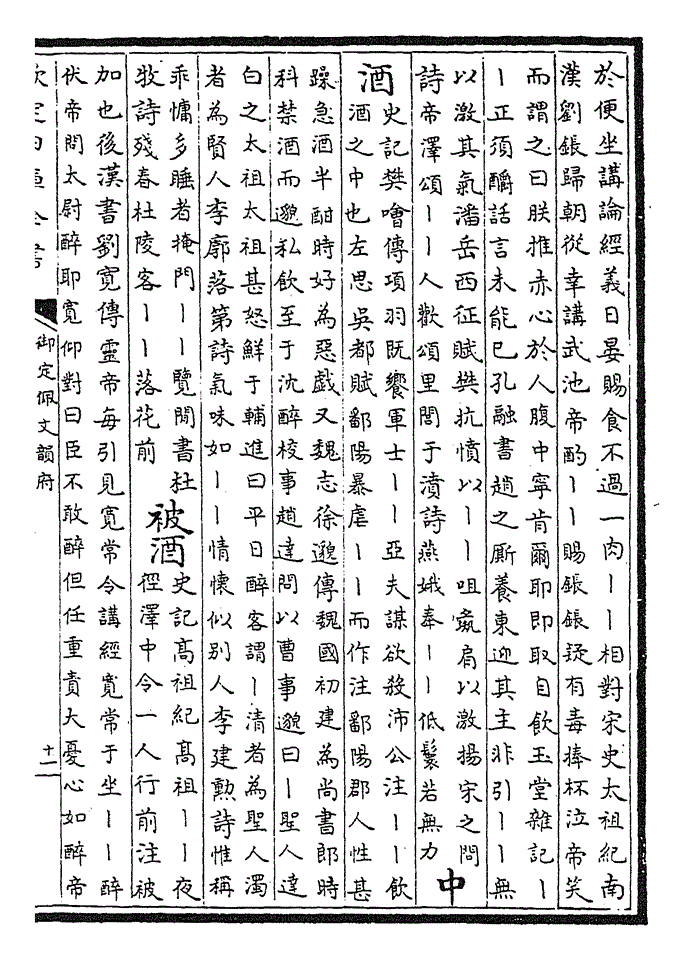 於便坐講論經義日晏賜食不過一肉丨丨相對宋史太祖紀南
漢劉鋹歸朝從幸講武池帝酌丨丨賜鋹鋹疑有毒捧杯泣帝笑
而謂之曰朕推赤心於人腹中寧肯爾耶即取自飲玉堂雜記丨
丨正須酹話言未能已孔融書趙之厮養東迎其主非引丨丨無
以激其氣潘岳西征賦樊抗憤以丨丨咀彘肩以激揚宋之問
詩帝澤頌丨丨人歡頌里閭于濆詩燕娥奉丨丨低鬟若無力
中酒
史記樊噲傳項羽既饗軍士丨丨亞夫謀欲殺沛公注丨丨飲
酒之中也左思吳都賦鄱陽暴虐丨丨而作注鄱陽郡人性甚
躁急酒半酣時好為惡戲又魏志徐邈傳魏國初建為尚書郎時
科禁酒而邈私飲至于沈醉校事趙達問以曹事邈曰丨聖人達
白之太祖太祖甚怒鮮于輔進曰平日醉客謂丨清者為聖人濁
者為賢人李廓落第詩氣味如丨丨情懷似別人李建勲詩惟稱
乖慵多睡者掩門丨丨覽閒書杜
牧詩殘春杜陵客丨丨落花前
被酒
史記髙祖紀髙祖丨丨夜
徑澤中令一人行前注被
加也後漢書劉寬傳靈帝每引見寬常令講經寬常于坐丨丨醉
伏帝問太尉醉耶寬仰對曰臣不敢醉但任重責大憂心如醉帝
欽定四庫全書
御定佩文韻府
十二